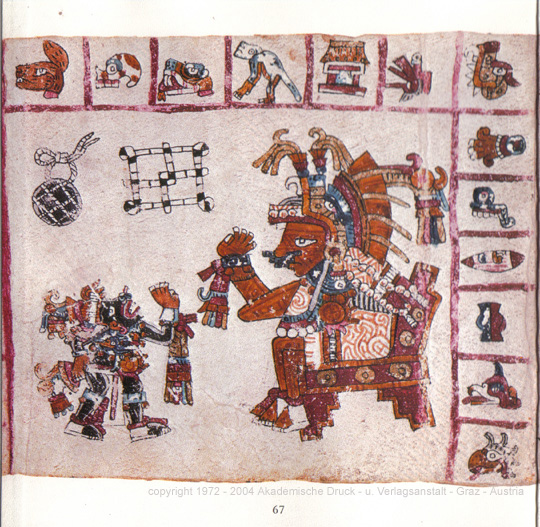 copyright 1972 - 2004 Akademische Druck - u. Verlagsanstalt - Graz - Austria
67